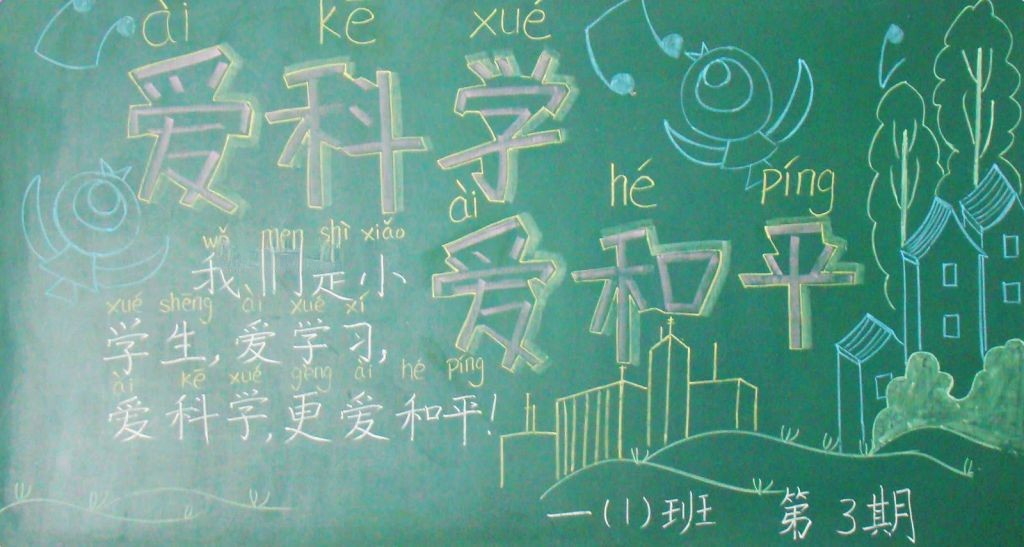 ài kē xué
爱科学
ài hé píng
爱和平
wǒ men shì xiǎo
我们是小
xué shēng ài xué xí
学生,爱学习,
ài kē xué gèng ài hé píng
爱科学,更爱和平!
一(1)班 第3期